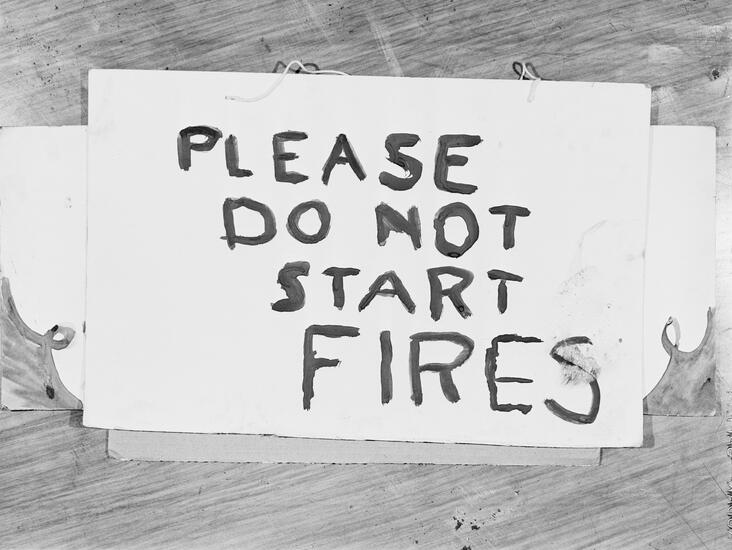 PLEASE
DO NOT
START
FIRES